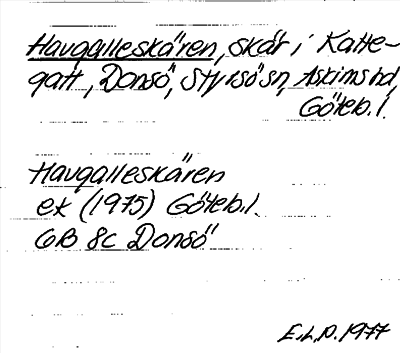 Havgalleskären, skär i Katte-
gatt, Donsö, Styrsö sn, Askims hd,
Göteb. l.
Havgalleskären
ek (1975) Göteb. l.
6B 8c Donsö
E.L.P. 1977